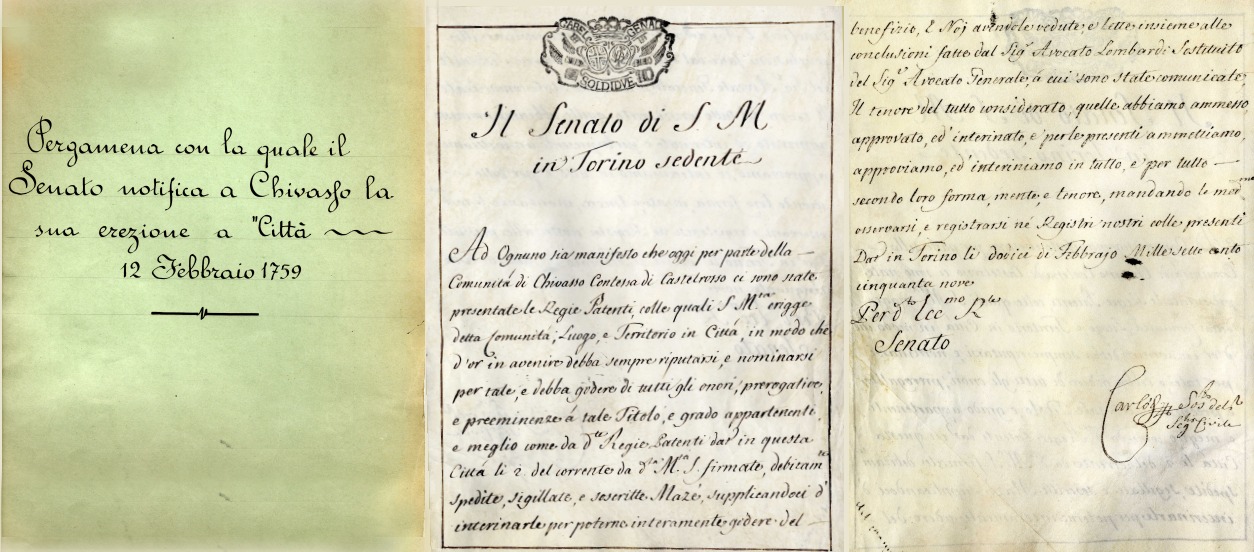 Pergamena con la quale il
Senato notifica a Chivasso la
sua erezione a "Città
12 Febbraio 1759
GABEL GENALE
SOLDI DVE
Il Senato di S. M
in Torino sedente
Ad Ognuno sia manifesto che oggi per parte della
Comunità di Chivasso Contessa di Castelrosso ci sono state
presentate le Regie Patenti, colle quali S. M.ta erigge
detta Comunità, Luogo, e Territorio in Città, in modo che
d'or in avenire debba sempre riputarsi, e nominarsi
per tale, e debba godere di tutti gli onori, prerogative,
e preeminenze á tale Titolo, e grado appartenenti
e meglio come da d.te Regie Patenti dat in questa
Città li 2. del corrente da d.ta M.ta S. firmate, debitam.te
spedite, sigillate, e soscritte Mazé, supplicandoci d'
interinarle per poterne interamente godere del
benefizio, E Noj avendole vedute, e lette insieme alle
conclusioni fatte dal Sig.r Avocato Lombardi Sostituito
del Sig.r Avocato Generale, á cui sono state comunicate,
Il tenore del tutto considerato, quelle abbiamo ammesso
approvato, ed' interinato, e' per le presenti ammettiamo,
approviamo, ed interiniamo in tutto, e' per tutto
secondo loro forma, mente, e tenore, mandando le med.me
osservarsi, e registrarsi né Registri nostri colle presenti
Dat in Torino li dodici di Febbrajo Mille sette cento
cinquanta nove
Per d.to Ecc.mo R.le
Senato
Sos.to del
Seg.ro Civile